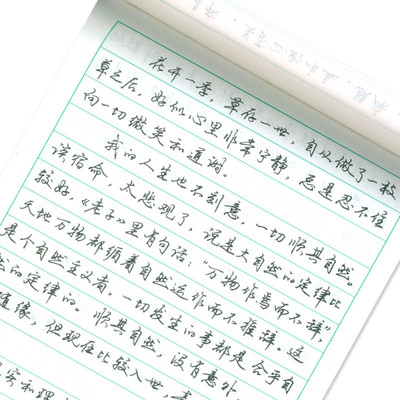 花开一季，草存一世，自从做了一枝
草之后，好似心里非常宁静，总是忍不住
向一切微笑和道谢。
我的人生也不刻意，一切顺其自然。
谈宿命，太悲观了，说是大自然的定律比
较好。《老子》里有句话：“万物作焉而不辞”，
天地万物都循着自然运作而不推辞。这
是个自然主义者，一切发生的事都是合乎自
然的定律的。顺其自然，没有意外，
随缘，但现在比较入世，
实和理